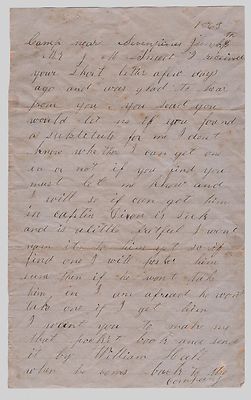 1863
Camp near
Mr J M Stuart I received
your short letter a few days
ago and was glad to hear
from you you said you
would let no if you found
a substitute for me I dont
know whether I can get one
in or not if you find you
must let me know and
I will so if can got him
in captin is sick
and is a little I want
it to him yet so if
find one I will him
even then if he wont take
him in I am afraid he wont
take one if I get him
I want you to make me
that pocket book and send
it by William Hall
when he coms back to the
company